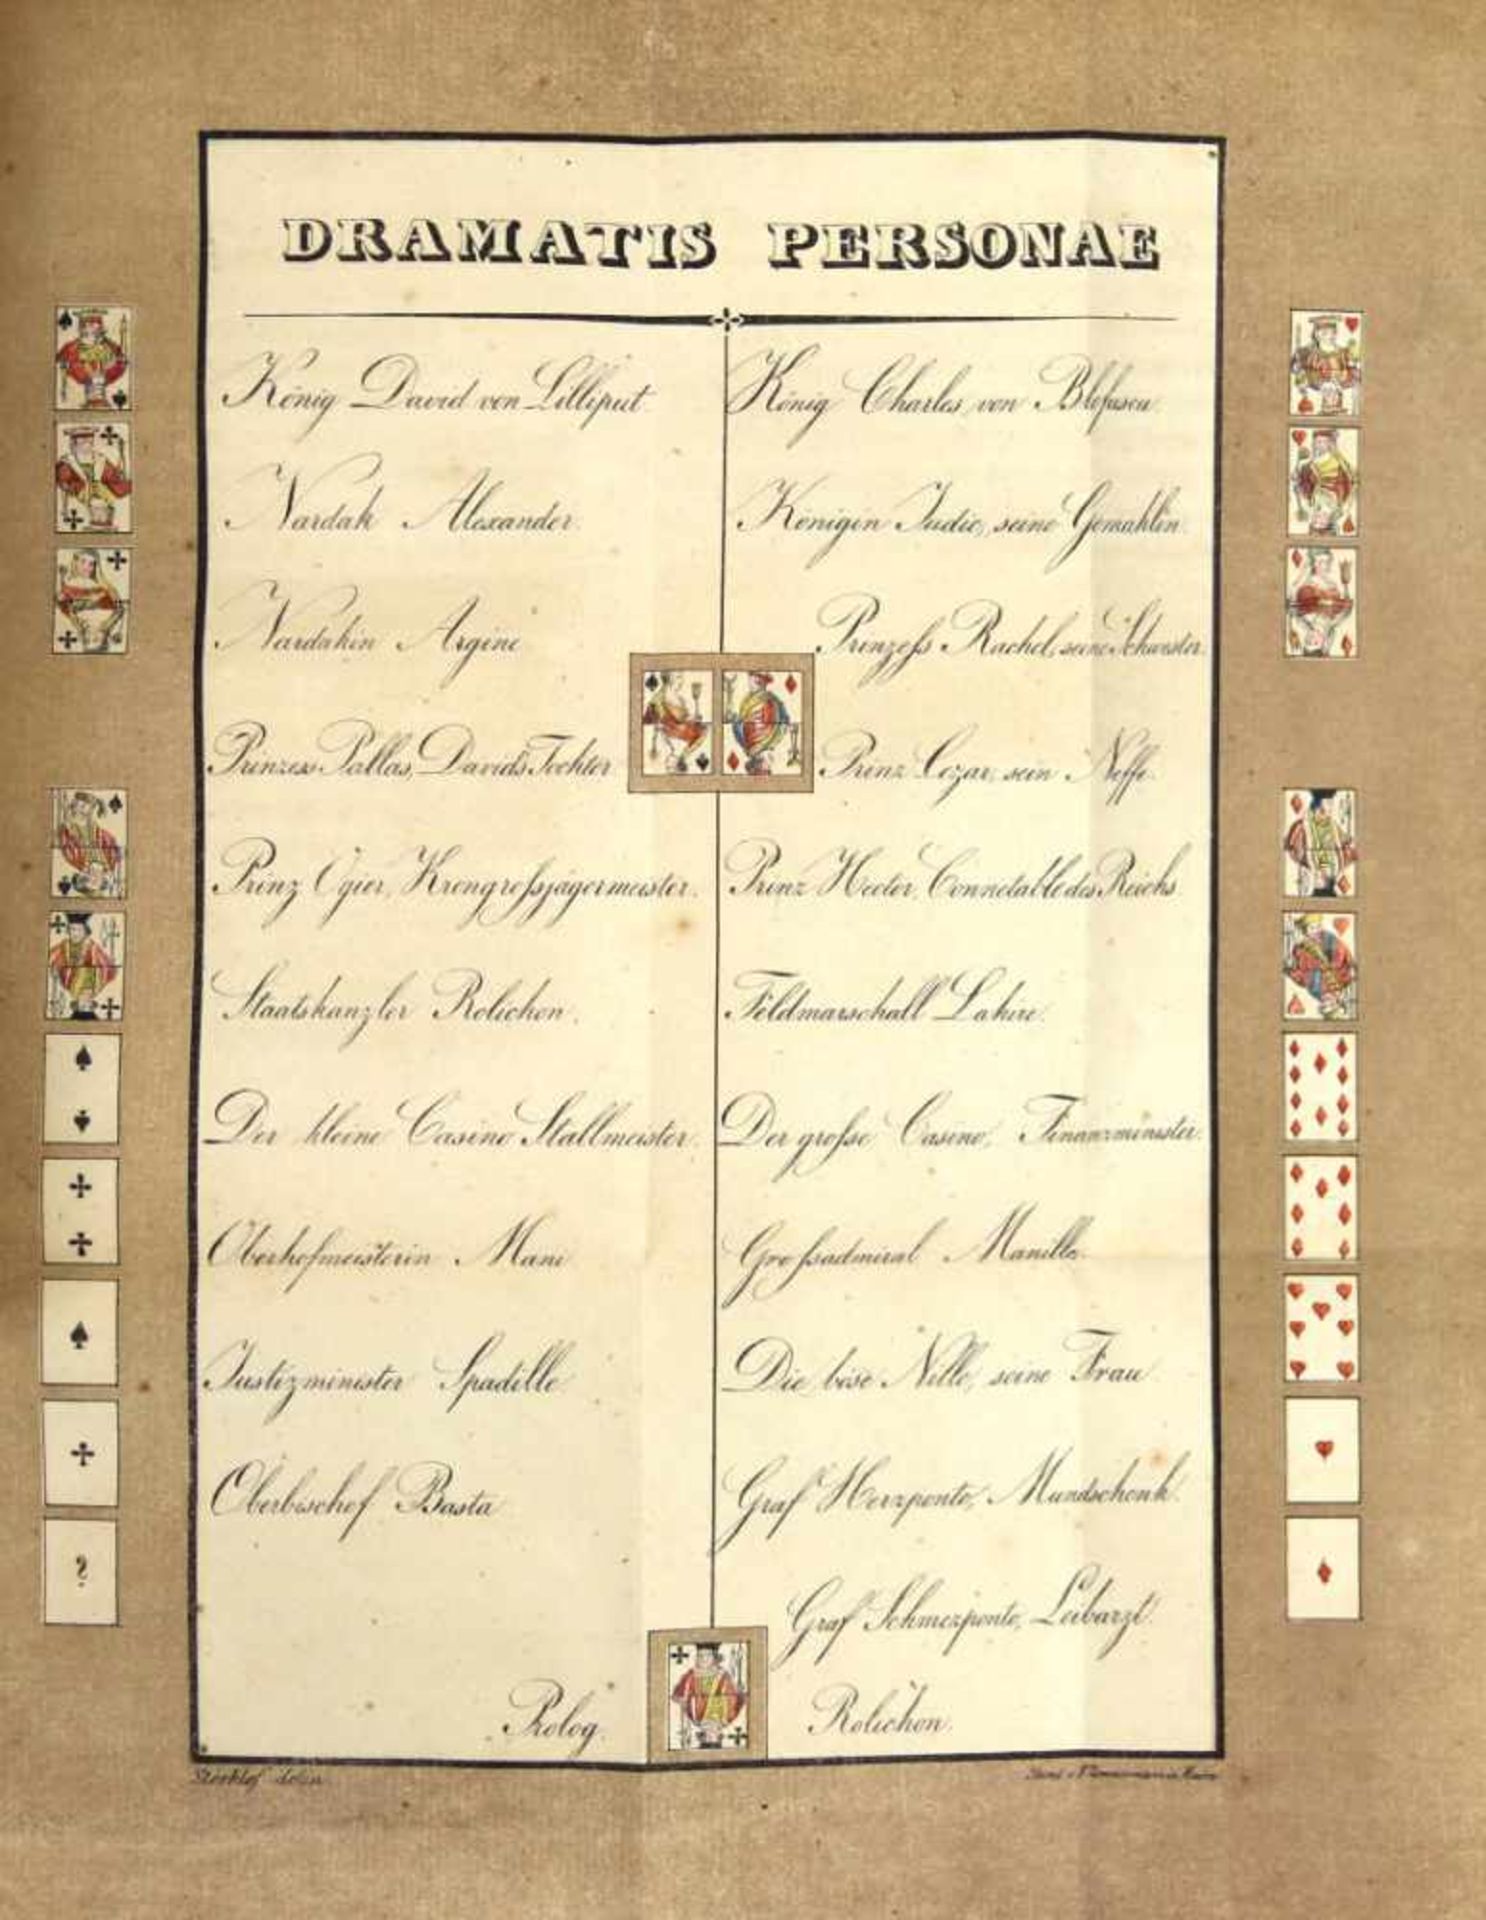 DRAMATIS PERSONAE
König David von Lilliput
Nardak Alexander
Nardakin Argine
Prinzess Pallas, David's Tochter
Prinz Ogier, Krongroßjägermeister.
Staatskanzler Rolichon.
Der kleine Casino Stallmeister.
Oberhofmeisterin Mani
Justizminister Spadille
Oberbischof Basta
König Charles von Blefuscu
Königin Judic, seine Gemahlin
Prinzeß Rachel, seine Schwester.
Prinz Cezar, sein Neffe.
Prinz Hector, Connetable des Reichs
Feldmarschall Lahire.
Der große Casino, Finanzminister.
Großadmiral Manille.
Die böse Nelle, seine Frau
Graf Herzponte, Mundschenk.
Graf Schmerzponte, Leibarzt.
Prolog. Rolichon.
delin